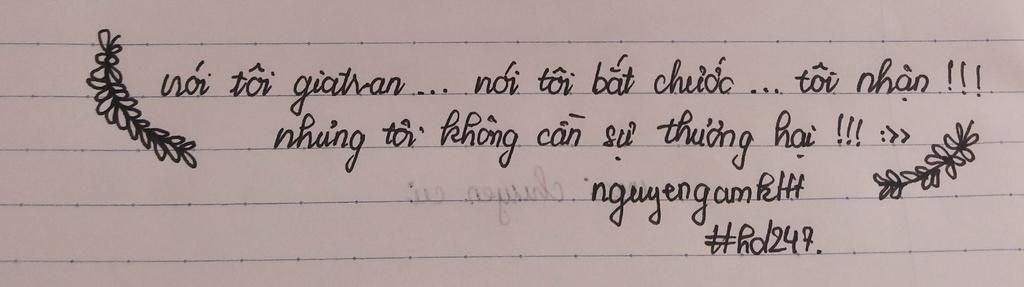 nói tôi giatran... nói tôi bắt chước... tôi nhận !!!
nhưng tôi không cần sự thương hại !!! :>>
#hd247.